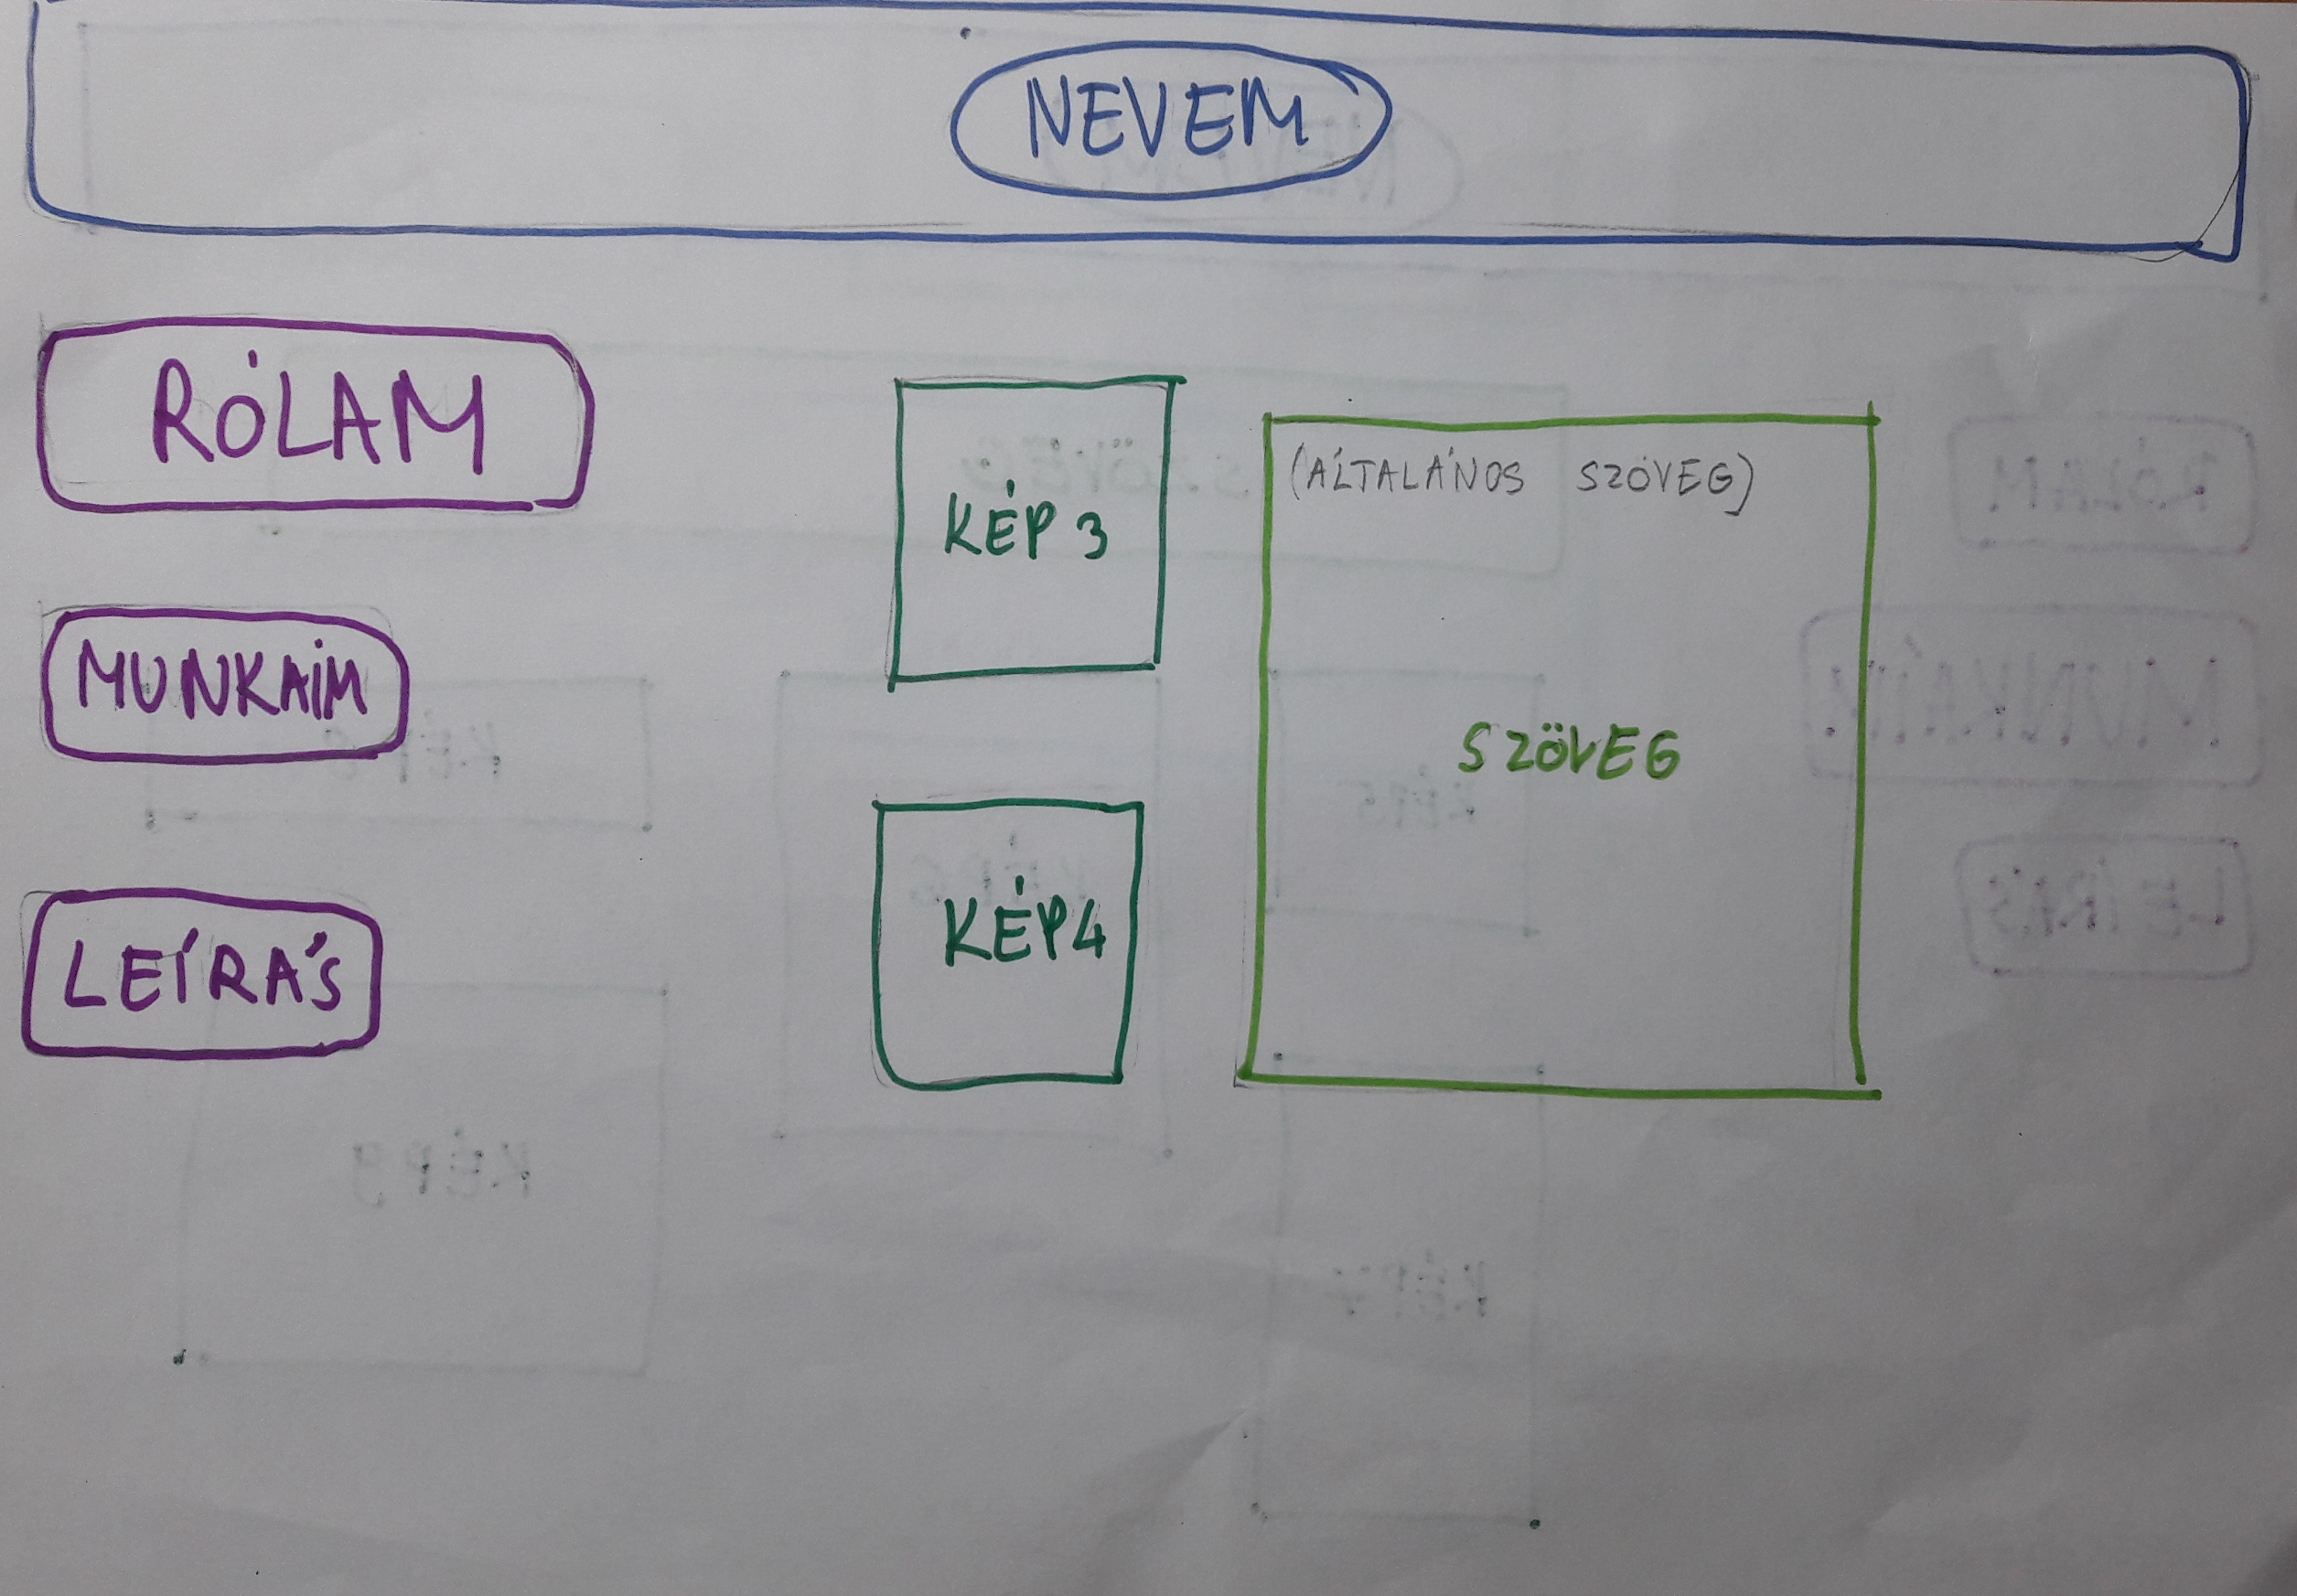 NEVEM
RÓLAM
MUNKAIM
LEÍRÁS
KÉP 3
KÉP 4
(ÁLTALÁNOS SZÖVEG)
SZÖVEG